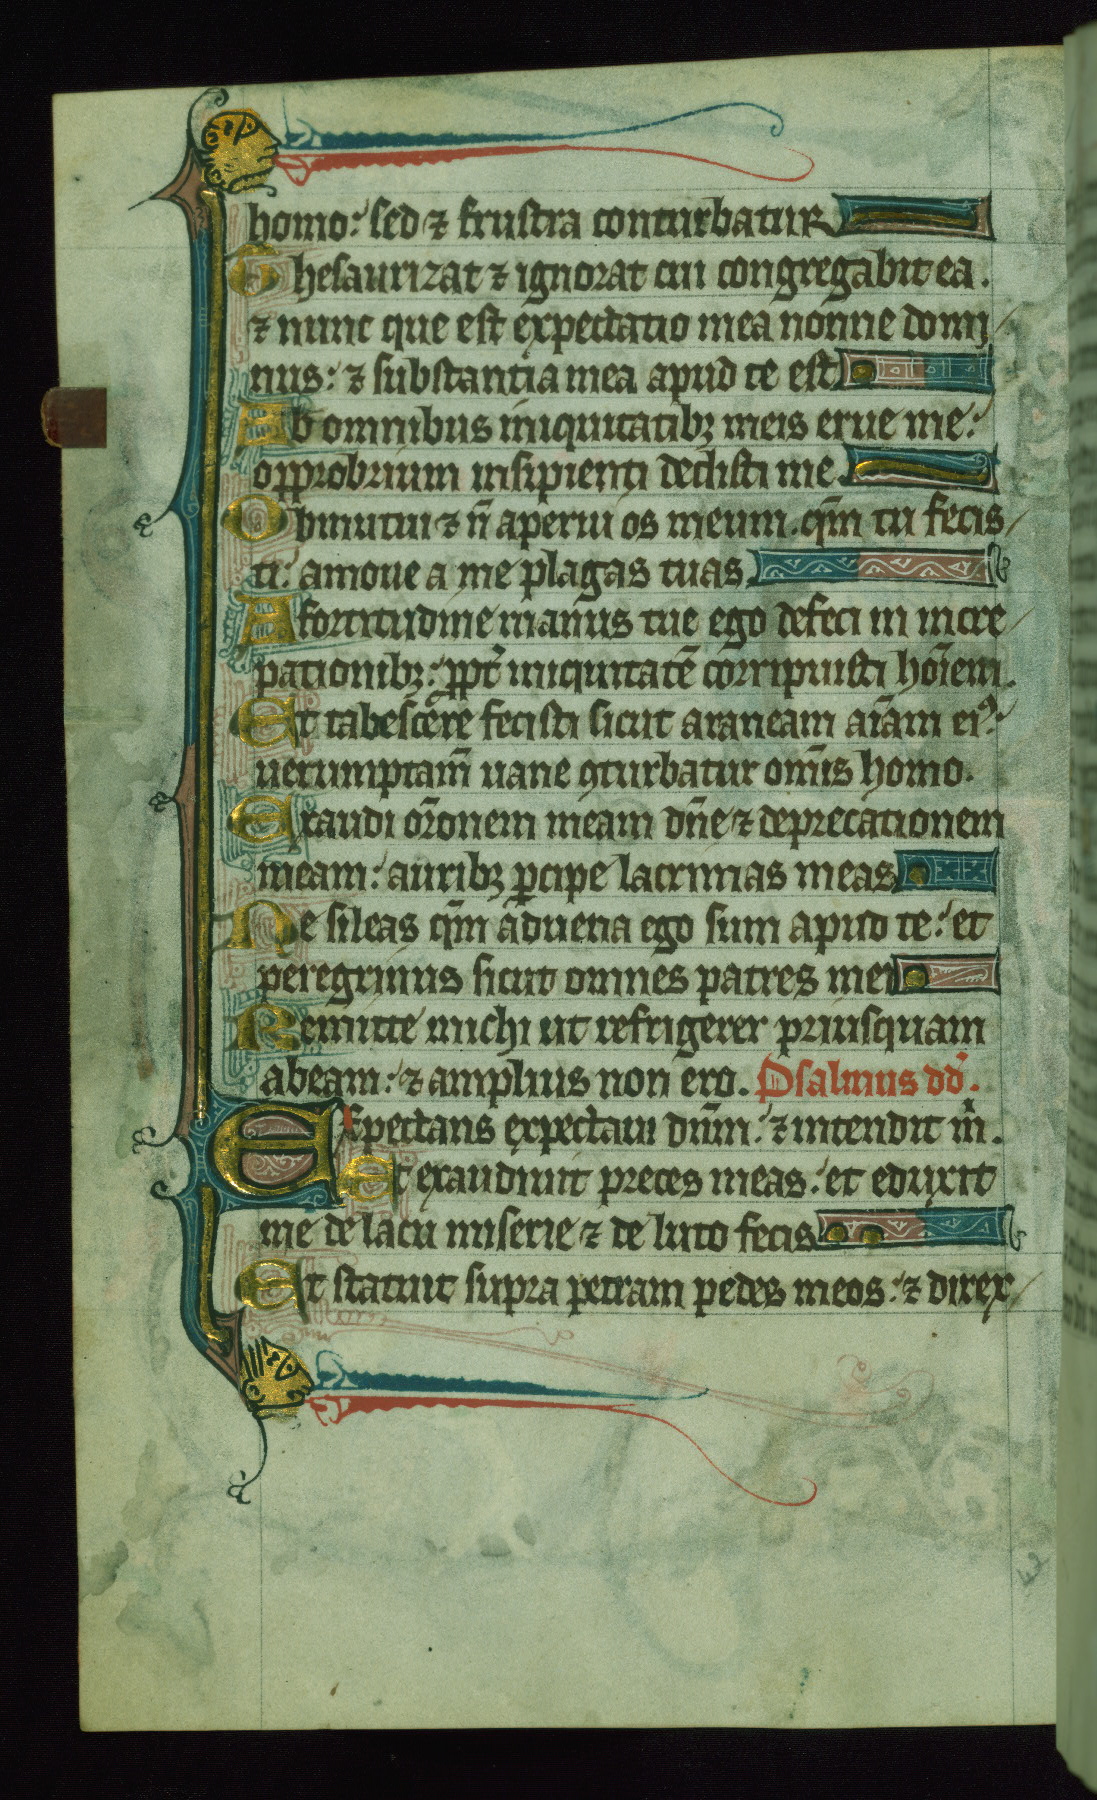 homo: sed ⁊ frustra conturbatur
Thesaurizat ⁊ ignorat cui congregabit ea.
⁊ nunc que est expectatio mea nonne domi
nus: ⁊ substantia mea apud te est
Ab omnibus iniquitatibꝫ meis erue me:
opprobrium insipienti dedisti me.
Obmutui ⁊ n̄ aperui os meum. qm̄ tu fecis
ti: amoue a me plagas tuas
A fortitudine manus tue ego defeci in incre
pationibꝫ: ꝓpt̾ iniquitatē corripuisti hoīem.
Et tabescere fecisti sicut araneam aīam eiꝰ:
uerumptam̄ uane ꝯturbatur omīs homo.
Exaudi or̄onem meam dn̄e ⁊ deprecationem
meam: auribꝫ ꝑcipe lacrimas meas
Ne sileas qm̄ aduena ego sum apud te: et
peregrinus sicut omnes patres mei
Remitte michi ut refrigerer priusquam
abeam: ⁊ amplius non ero. Psalmus dd̄.
Expectans expectaui dn̄m: ⁊ intendit m̄.
Et exaudiuit preces meas: et eduxit
me de lacu miserie ⁊ de luto fecis
Et statuit supra petram pedes meos: ⁊ direx